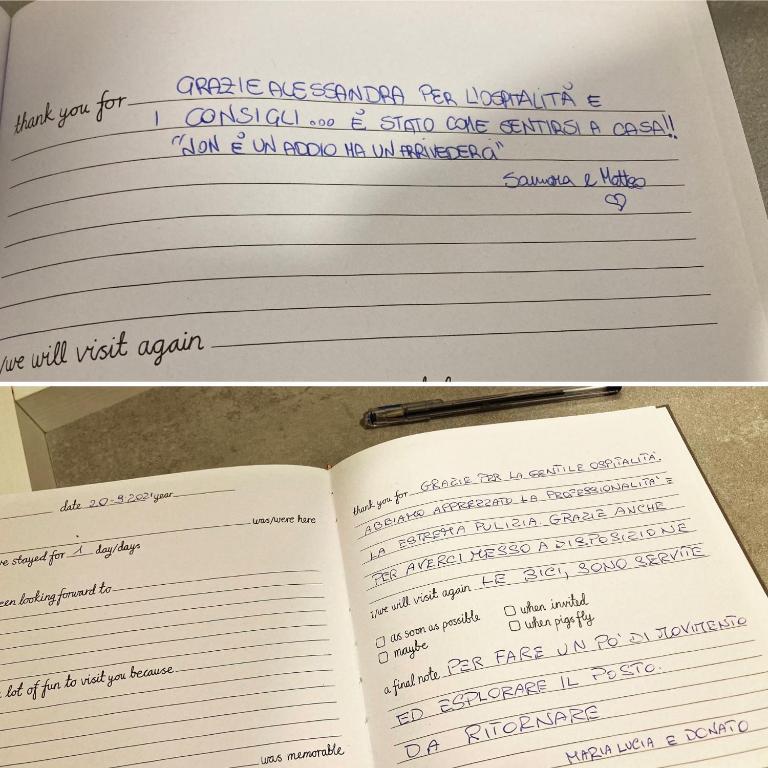 thank you for GRAZIE ALESSANDRA PER L'OSPITALITÀ E
I CONSIGLI... È STATO COME SENTIRSI A CASA!!
"NON È UN ADDIO MA UN ARRIVEDERCI"
e Matteo
/we will visit again
date 20-9-2021 year
was/were here
e stayed for 1 day/days
een looking forward to
lot of fun to visit you because
was memorable
thank you for GRAZIE PER LA GENTILE OSPITALITÀ.
ABBIAMO APPREZZATO LA PROFESSIONALITA' E
LA ESTREMA PULIZIA. GRAZIE ANCHE
PER AVERCI MESSO A DISPOSIZIONE
i/we will visit again LE BICI, SONO SERVITE
as soon as possible when invited
maybe when pigs fly
a final note PER FARE UN PO' DI MOVIMENTO
ED ESPLORARE IL POSTO.
DA RITORNARE
MARIA LUCIA E DONATO